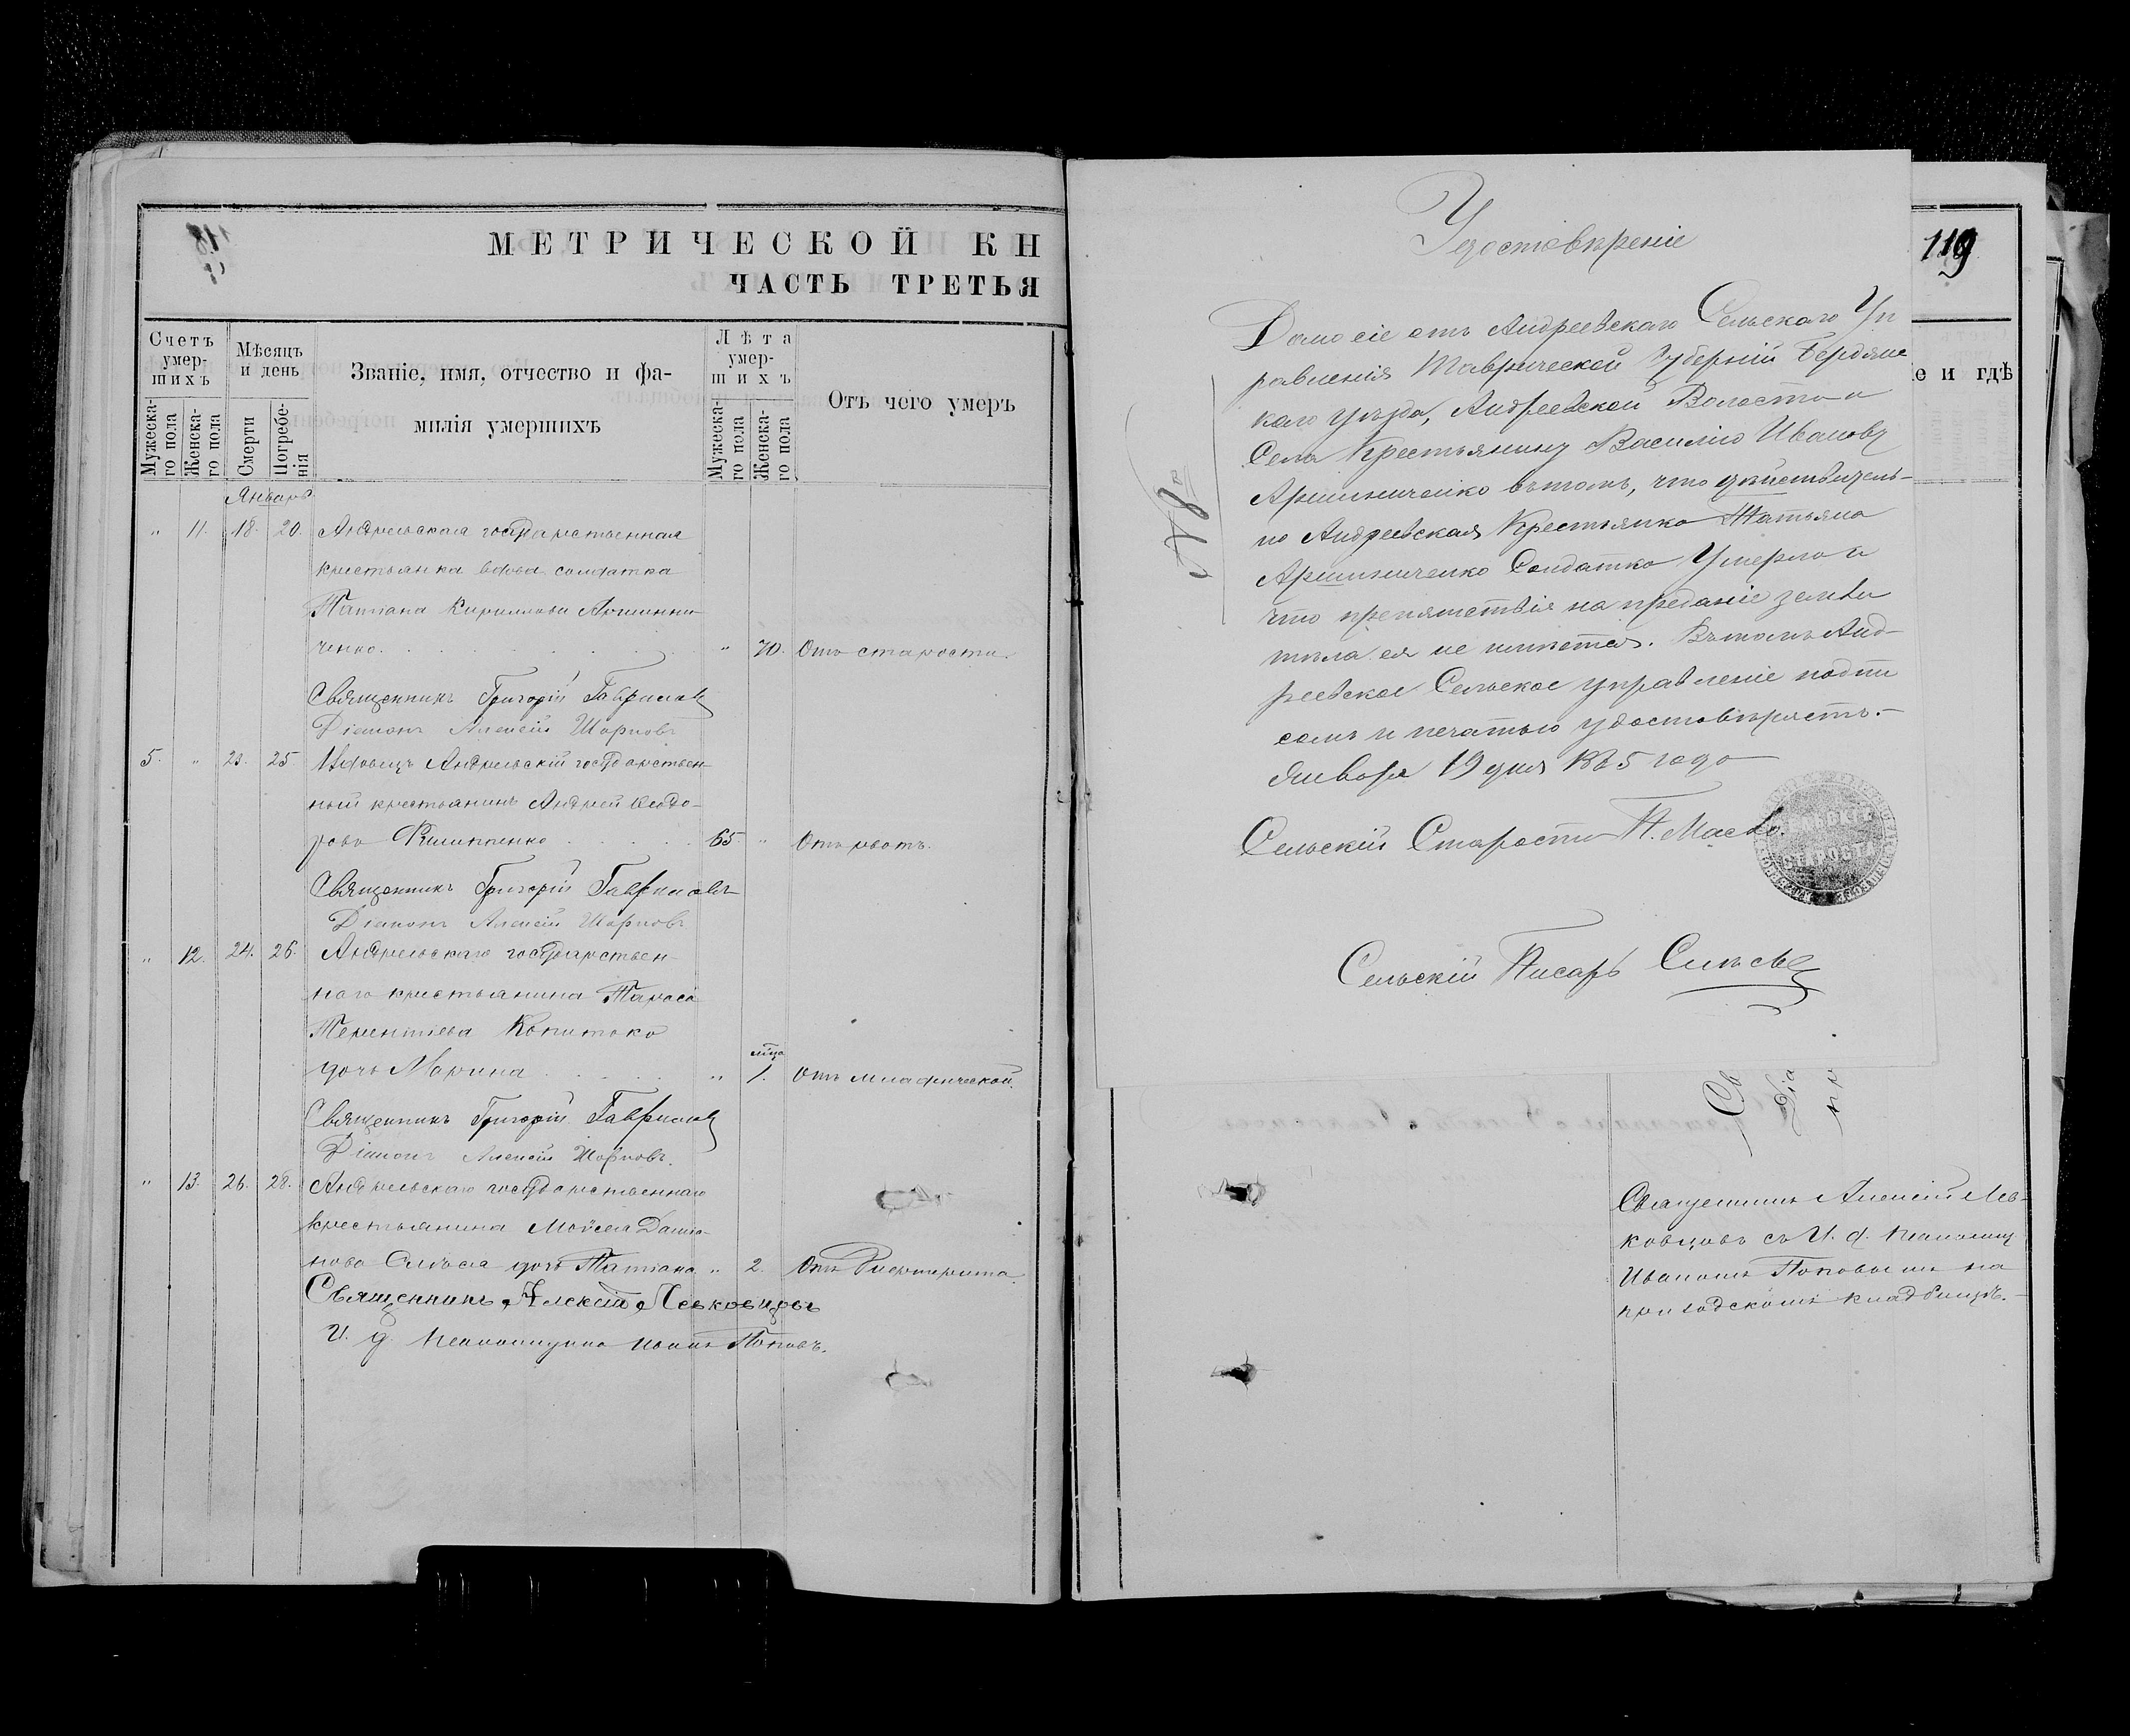 МЕТРИЧЕСКОЙ КН
ЧАСТЬ ТРЕТЬЯ
Счетъ умер-шихъ
Мужеска-го пола
Женска-го пола
Мѣсяцъ и день
Смерти
Погребе-нія
Званіе, имя, отчество и фа-
милія умершихъ
Лѣта умер-шихъ
Мужеска-го пола
Женска-го пола
Отъ чего умеръ
Январь
" 11. 18. 20. Андреевская государственная
крестьянка вдова солдатка
Татіана Кириллова Аршинни-
ченко. " 70. Отъ старости.
Священникъ Григорій Гавриловъ
Діаконъ Алексій Шарповъ
5. " 23. 25. Вдовецъ Андреевскій государствен-
ный крестьянинъ Андрей Ѳеодо-
ровъ Филиппенко 65. " Отъ рвотъ.
Священникъ Григорій Гавриловъ
Діаконъ Алексій Шарповъ
" 12. 24. 26. Андреевскаго государствен-
наго крестьянина Тараса
Терентіева
дочь Марина " 1. Отъ младенческой.
Священникъ Григорій Гавриловъ
Діаконъ Алексій Шарповъ.
" 13. 26. 28. Андреевскаго государственнаго
крестьянина Мойсея Даміа-
нова дочь Татіана " 2. Отъ Дифтерита.
Священникъ Алексій Левковцовъ
И. д. псаломщика Иванъ Поповъ.
Удостовѣреніе
Дано сіе отъ Андреевскаго Сельскаго Уп
равленія Таврической Губерніи Бердянс
каго уѣзда, Андреевской Волости и
Села Крестьянину Василію Иванову
Аршинниченко въ томъ, что дѣйствитель-
но Андреевская Крестьянка Татьяна
Аршинниченко Солдатка Умерла и
что препятствія на преданіе земли
тѣла ея не имѣется. Въ томъ Анд-
реевское Сельское управленіе подпи
сомъ и печатью удостовѣряетъ.-
Января 19 дня 1885 года
Сельскій Староста П. Масло.
СТАРОСТА
Сельскій Писарь
№ 8
119
е и гдѣ
Св
Діа
пр
Священникъ Алексій Лев-
ковцовъ съ И. д. псаломщ
Иваномъ Поповымъ на
приходскомъ кладбищѣ.-